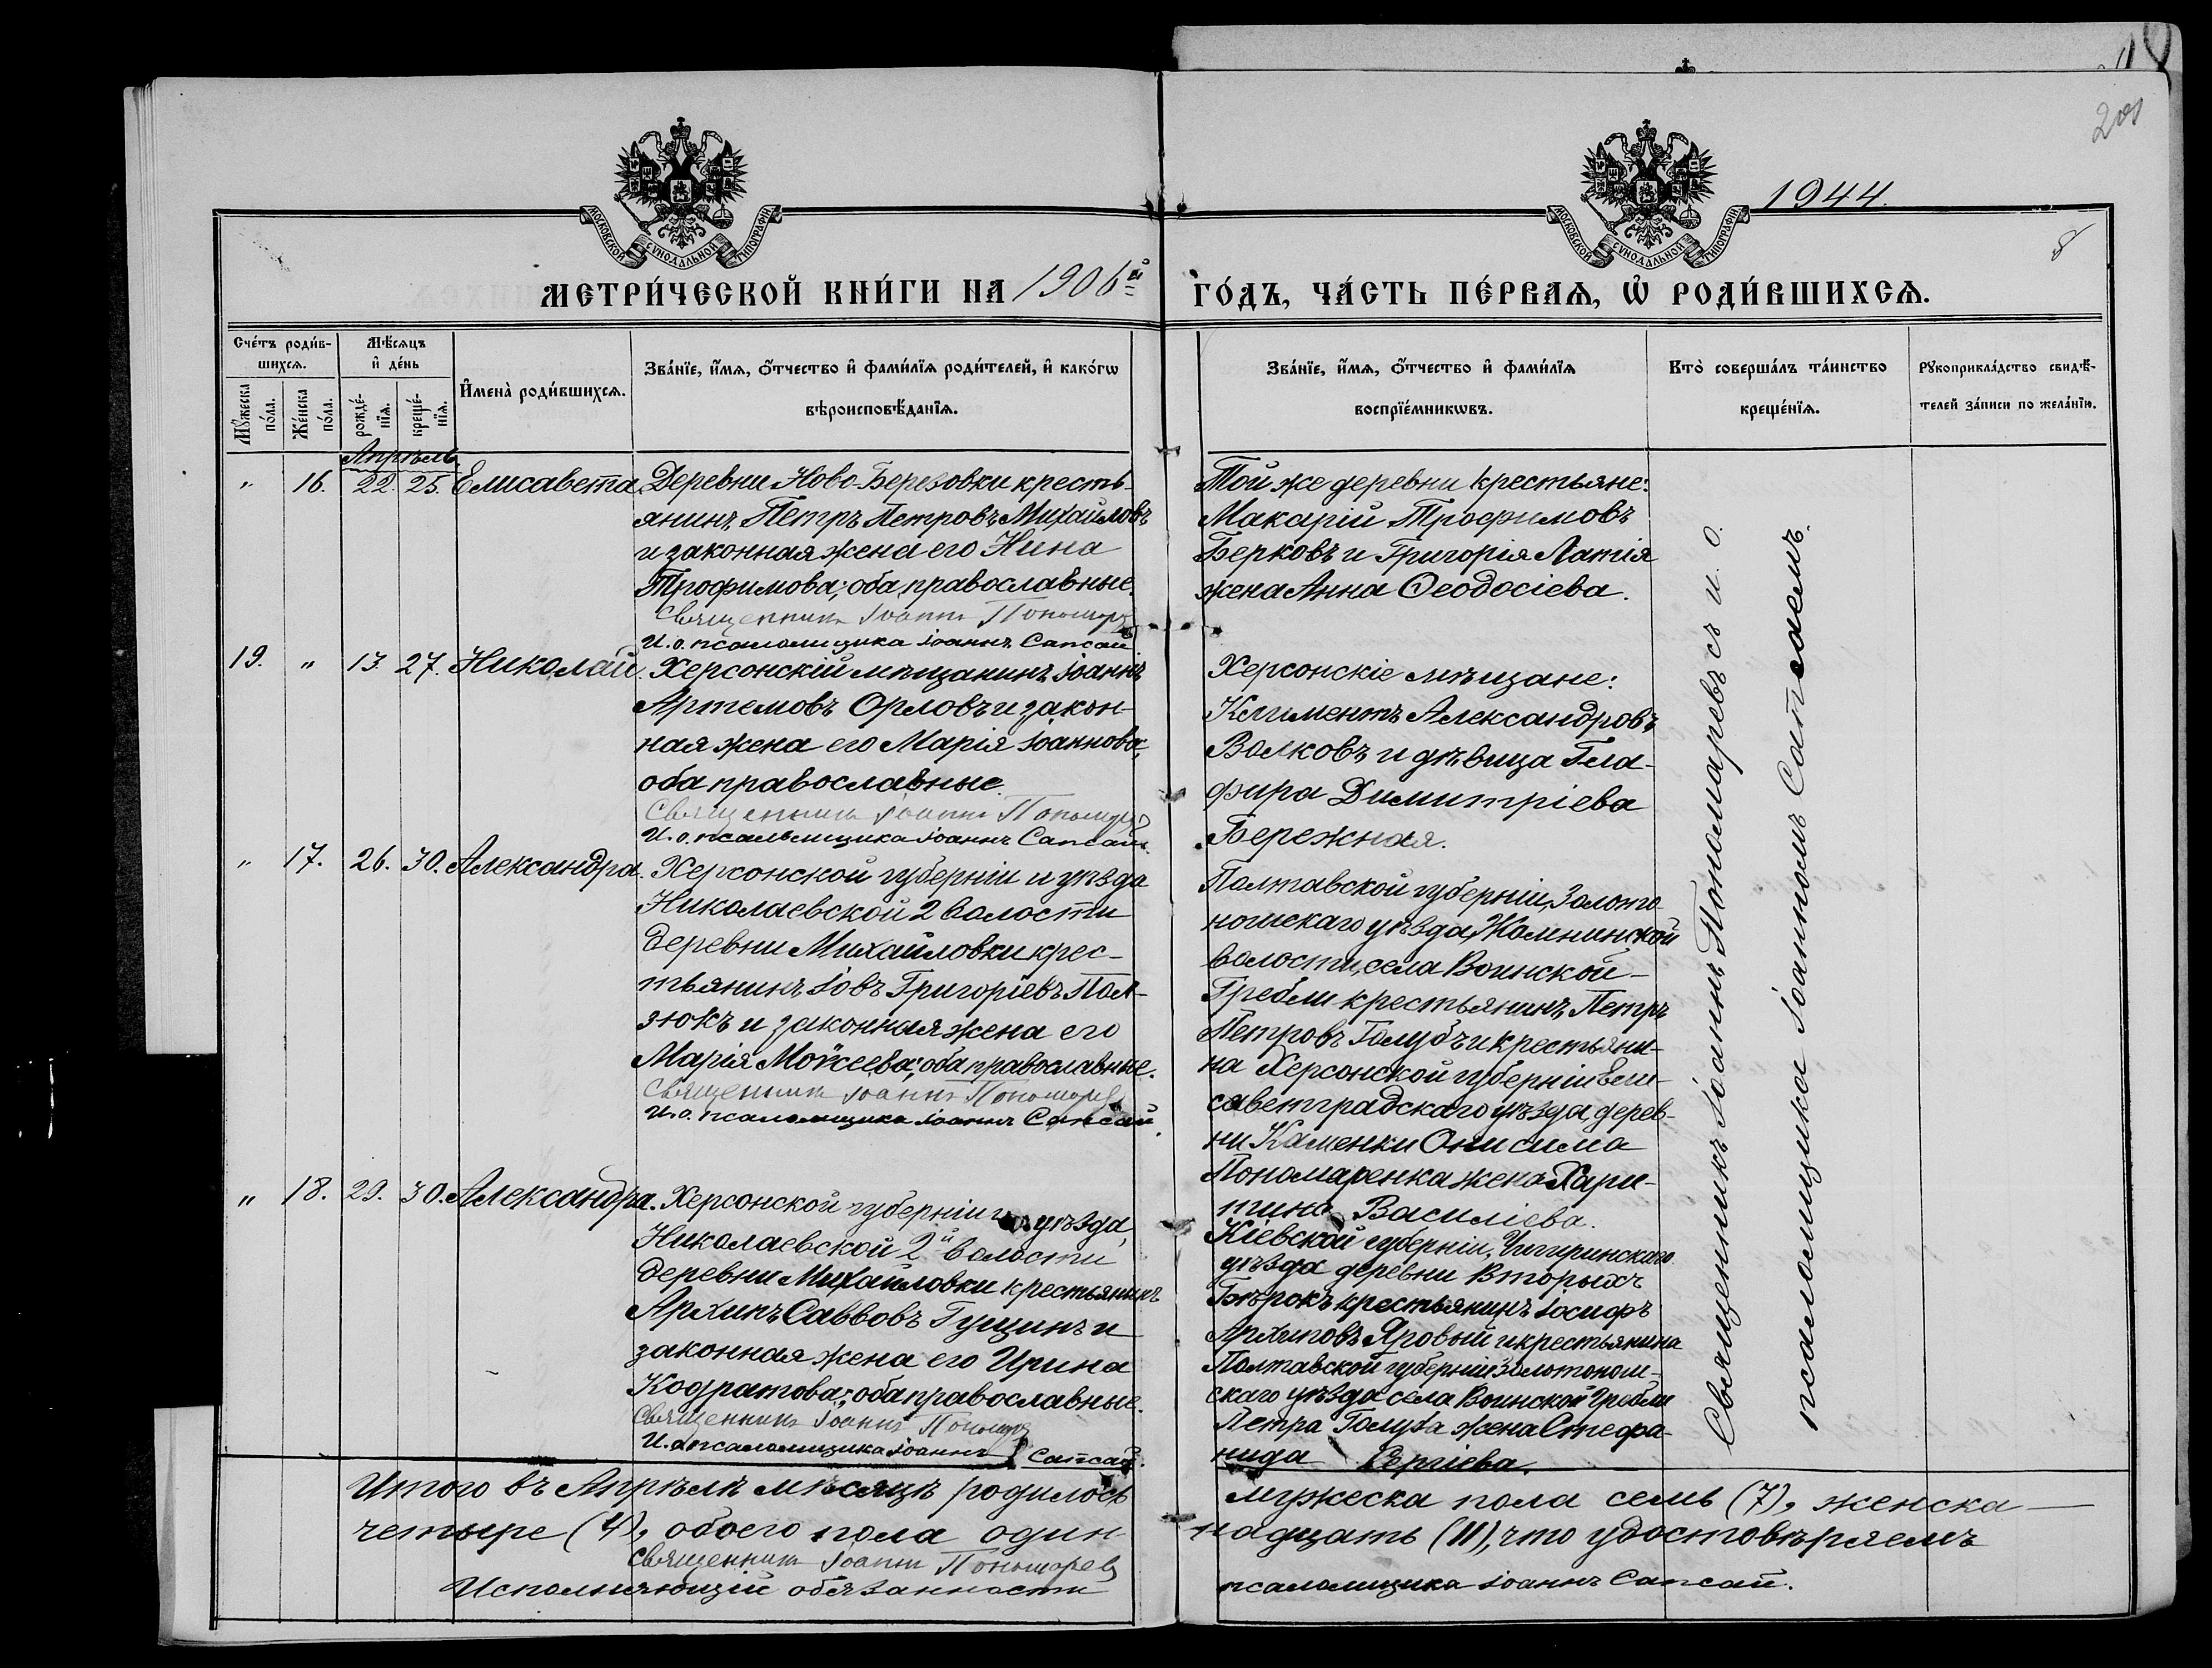 201
1944.
8
МОСКОВСКОЙ СѴНОДАЛЬНОЙ ТИПОГРАФІИ
МОСКОВСКОЙ СѴНОДАЛЬНОЙ ТИПОГРАФІИ
МЕТРИ́ЧЕСКОЙ КНИ́ГИ НА 1906й ГО́ДЪ, ЧА́СТЬ ПЕ́РВАѦ, Ѡ РОДИ́ВШИХСѦ.
Сче́тъ роди́в-
шихсѧ.
Мꙋ́жеска
по́ла.
Же́нска
по́ла.
Мѣ́сѧцъ
и҆ де́нь
рожде́-
нїѧ.
креще́-
нїѧ.
И҆мена̀ роди́вшихсѧ.
Зва́нїе, и҆́мѧ, ѻ҆́тчество и҆ фами́лїѧ роди́телей, и҆ како́гѡ
вѣроисповѣ́данїѧ.
Зва́нїе, и҆́мѧ, ѻ҆́тчество и҆ фами́лїѧ
воспрїе́мникѡвъ.
Кто̀ соверша́лъ та́инство
креще́нїѧ.
Рꙋкоприкла́дство свидѣ́-
телей за́писи по жела́нїю.
Апрѣль
„ 16. 22. 25. Елисавета
Деревни Ново-Березовки кресть-
янинъ Петръ Петровъ Михайловъ
и законная жена его Нина
Трофимова; оба православные.
Священникъ Іоаннъ Пономарев
И. о. псаломщика Іоаннъ Сапсай
Той же деревни крестьяне:
Макарій Трофимовъ
Берковъ и Григорія Латія
жена Анна Ѳеодосіева.
19. „ 13. 27. Николай.
Херсонскій мѣщанинъ Іоаннъ
Артемовъ Орловъ и закон-
ная жена его Марія Іоаннова,
оба православные.
Священникъ Іоаннъ Пономарев
И. о. псаломщика Іоаннъ Сапсай.
Херсонскіе мѣщане:
Климентъ Александровъ
Волковъ и дѣвица Гла-
фира Димитріева
Бережная.
„ 17. 26. 30. Александра.
Херсонской губерніи и уѣзда
Николаевской 2 волости
деревни Михайловки крес-
тьянинъ Іовъ Григоріевъ Пол-
зюкъ и законная жена его
Марія Моѵсеева; оба православные.
Священникъ Іоаннъ Пономарев
И. о. псаломщика Іоаннъ Сапсай.
Полтавской губерніи, Золото-
ношскаго уѣзда, Жолнинской
волости, села Воинской-
Гребли крестьянинъ Петръ
Петровъ Голубъ и крестьяни-
на Херсонской губерніи Ели-
саветградскаго уѣзда дерев-
ни Каменки Онисима
Пономаренка жена Хари-
тина Василіева.
„ 18. 29. 30. Александра.
Херсонской губерніи и уѣзда,
Николаевской 2й волости
деревни Михайловки крестьянинъ
Архипъ Саввовъ Гущинъ и
законная жена его Ирина
Кодратова; оба православные.
Священникъ Іоаннъ Пономарев
И. о. псаломщика Іоаннъ Сапсай.
Кіевской губерніи, Чигиринскаго
уѣзда деревни Вторыхъ
Бѣрокъ крестьянинъ Іосифъ
Архиповъ Яровый и крестьянина
Полтавской губерніи Золотонош-
скаго уѣзда села Воинской Гребли
Петра Голуба жена Стефа-
нида Сергіева.
Священникъ Іоаннъ Пономаревъ съ и. о.
псаломщика Іоанномъ Сапсаемъ.
Итого въ Апрѣлѣ мѣсяцѣ родилось мужеска пола семь (7), женска —
четыре (4), обоего пола один-надцать (11), что удостовѣряемъ
Священникъ Іоаннъ Пономарев
Исполняющій обязанности псаломщика Іоаннъ Сапсай.